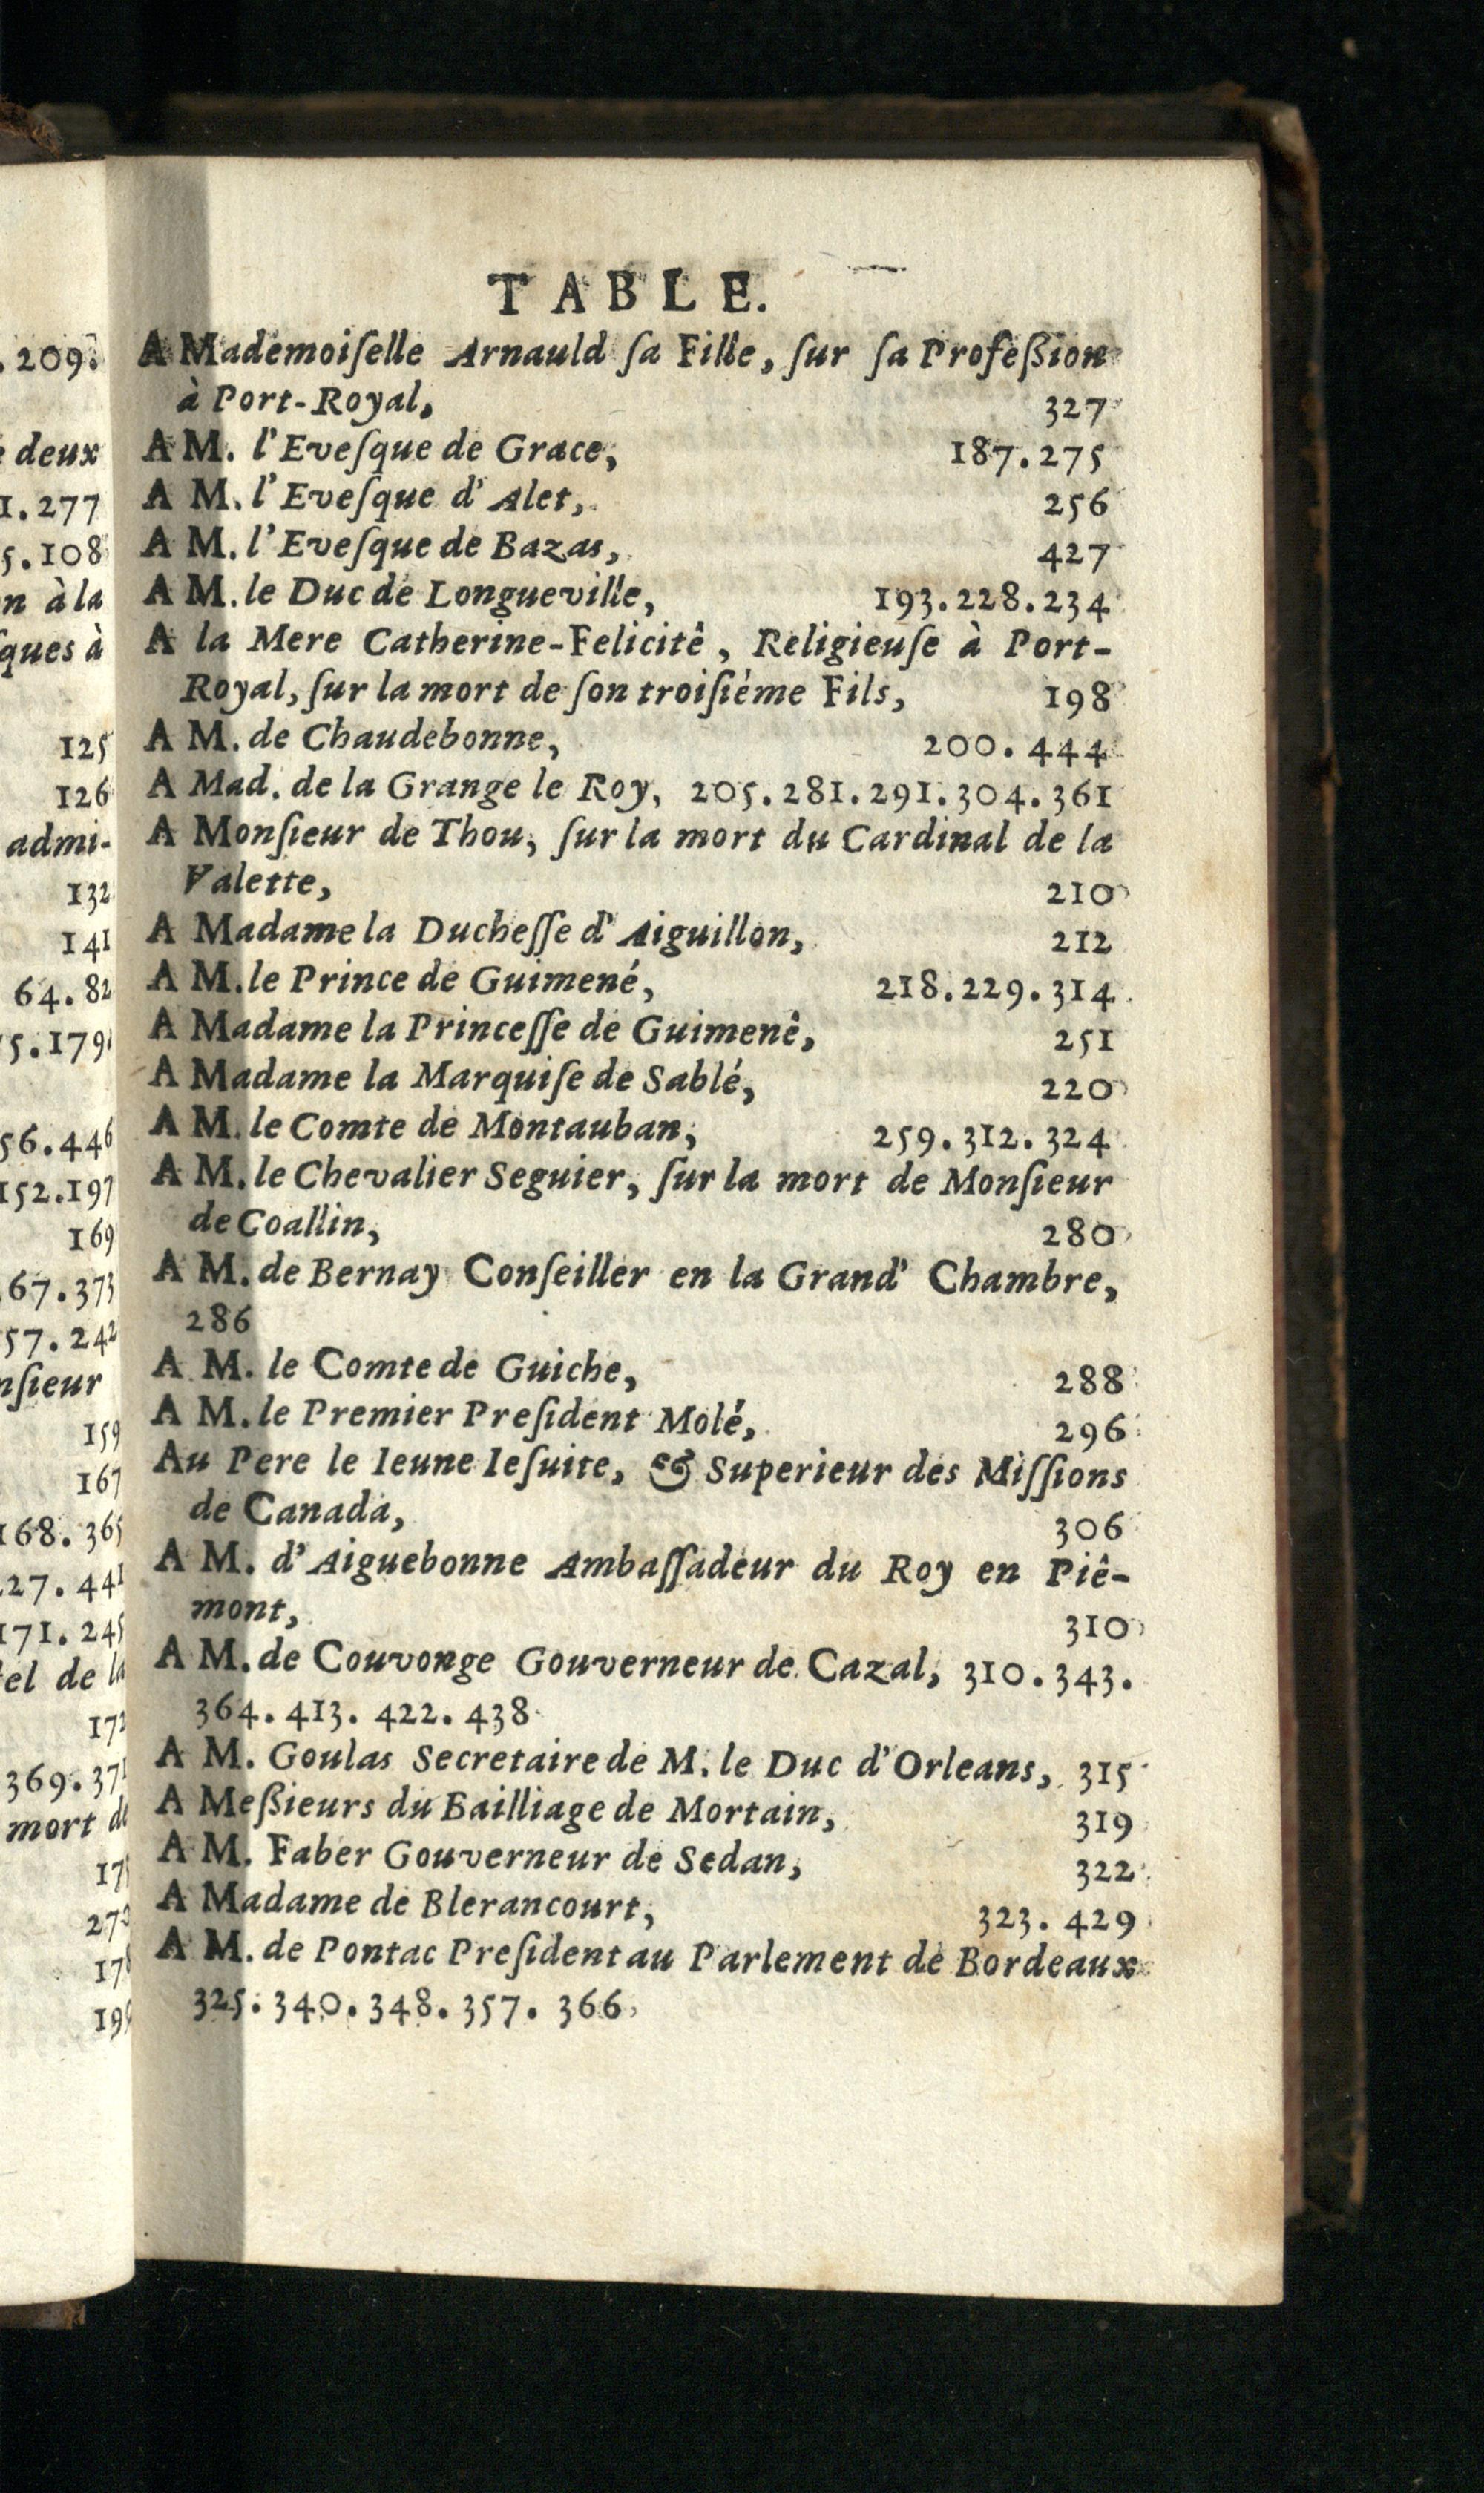 TABLE.
A Mademoiſelle Arnauld ſa Fille, ſur ſa Profeßion
à Port-Royal, 327
A M. l'Eveſque de Grace, 187.275
A M. l'Eveſque d'Alet, 256
A M. l'Eveſque de Bazas, 427
A M. le Duc de Longueville, 193.228.234
A la Mere Catherine-Felicitê, Religieuſe à Port-
Royal, ſur la mort de ſon troiſiéme Fils, 198
A M. de Chaudebonne, 200.444
A Mad. de la Grange le Roy, 205.281.291.304.361
A Monſieur de Thou, ſur la mort du Cardinal de la
Valette, 210
A Madame la Ducheſſe d'Aiguillon, 212
A M. le Prince de Guimené, 218.229.314.
A Madame la Princeſſe de Guimenê, 251
A Madame la Marquiſe de Sablé, 220
A M. le Comte de Montauban, 259.312.324
A M. le Chevalier Seguier, ſur la mort de Monſieur
de Coallin, 280
A M. de Bernay Conſeiller en la Grand' Chambre,
286
A M. le Comte de Guiche, 288
A M. le Premier Preſident Molé, 296
Au Pere le Ieune Ieſuite, & Superieur des Miſſions
de Canada, 306
A M. d'Aiguebonne Ambaſſadeur du Roy en Piê-
mont, 310
A M. de Couvonge Gouverneur de Cazal, 310.343.
364.413.422.438
A M. Goulas Secretaire de M. le Duc d'Orleans, 315
A Meßieurs du Bailliage de Mortain, 319
A M. Faber Gouverneur de Sedan, 322
A Madame de Blerancourt, 323.429
A M. de Pontac Preſident au Parlement de Bordeaux
325.340.348.357.366
209.
deux
1.277
5.108
à la
ques à
125
126
admi-
132
141
64.82
5.179
56.446
152.197
169
67.373
57.242
nſieur
159
167
168.365
27.441
171.245
el de la
172
369.371
mort de